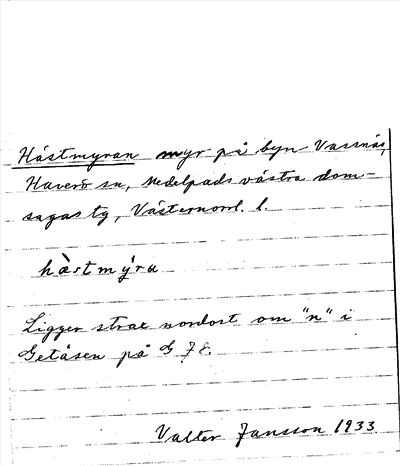 Hästmyran myr på byn Vassnäs,
Haverö sn, Medelpads västra dom-
sagas tg, Västernorrl. l.
hàstmy̌ra
Ligger strax nordost om "n" i
Getåsen på G 7 E.
Valter Jansson 1933